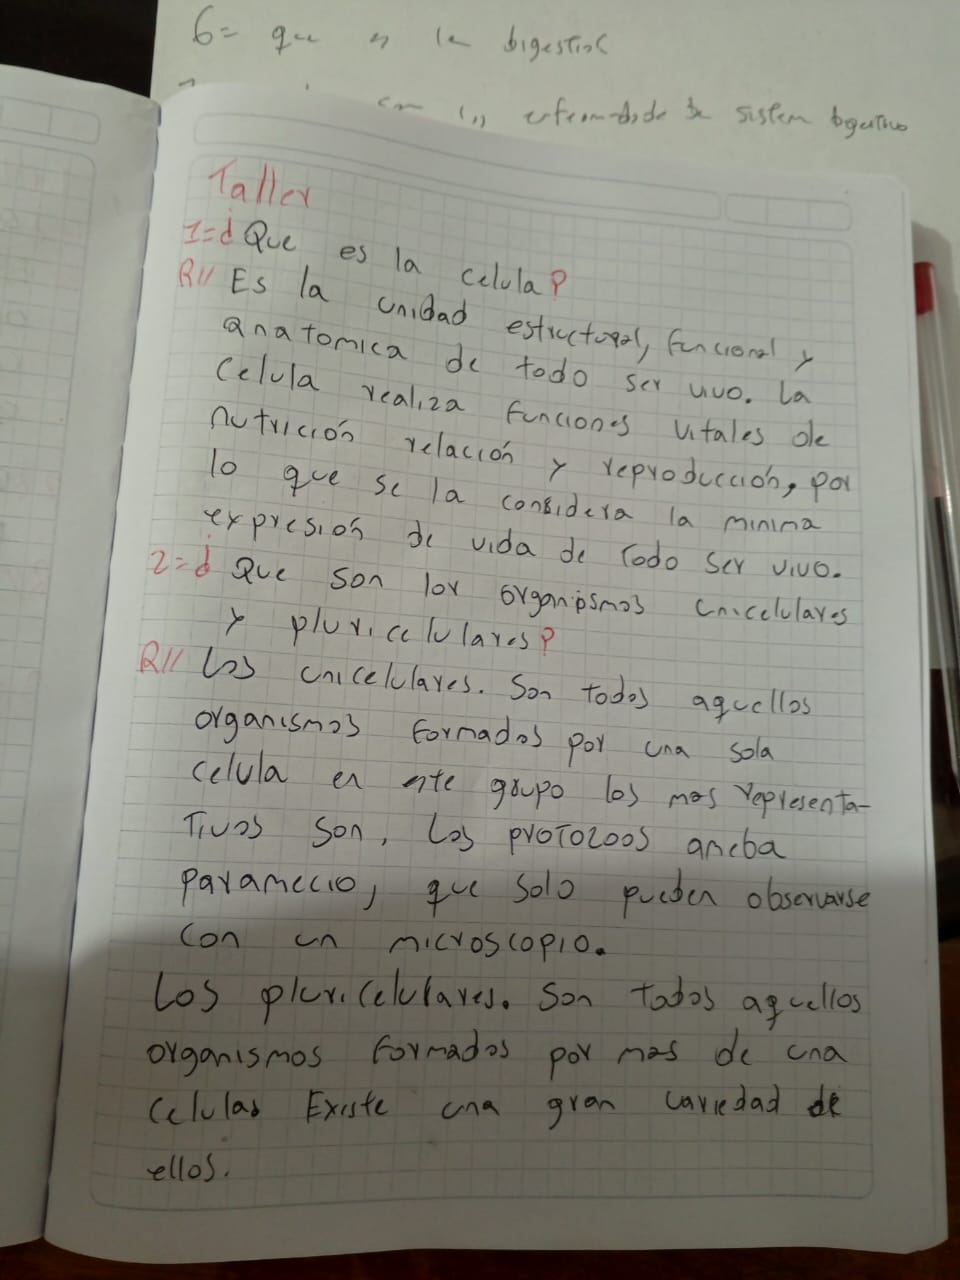 6= que es la digestion
las enfermedade de sistem digestivo
Taller
1=¿Que es la celula?
R// Es la unidad estructural, funcional y
anatomica de todo ser vivo. La
celula realiza funciones vitales de
nutrición relación y reproducción, por
lo que se la considera la minima
expresión de vida de todo ser vivo.
2=¿Que son los organismos unicelulares
y pluricelulares?
R// Los unicelulares. Son todos aquellos
organismos formados por una sola
celula en este grupo los mas representa-
tivos son, Los protozoos ameba
paramecio, que solo pueden observarse
con un microscopio.
Los pluricelulares. Son todos aquellos
organismos formados por mas de una
celulas Existe una gran variedad de
ellos.